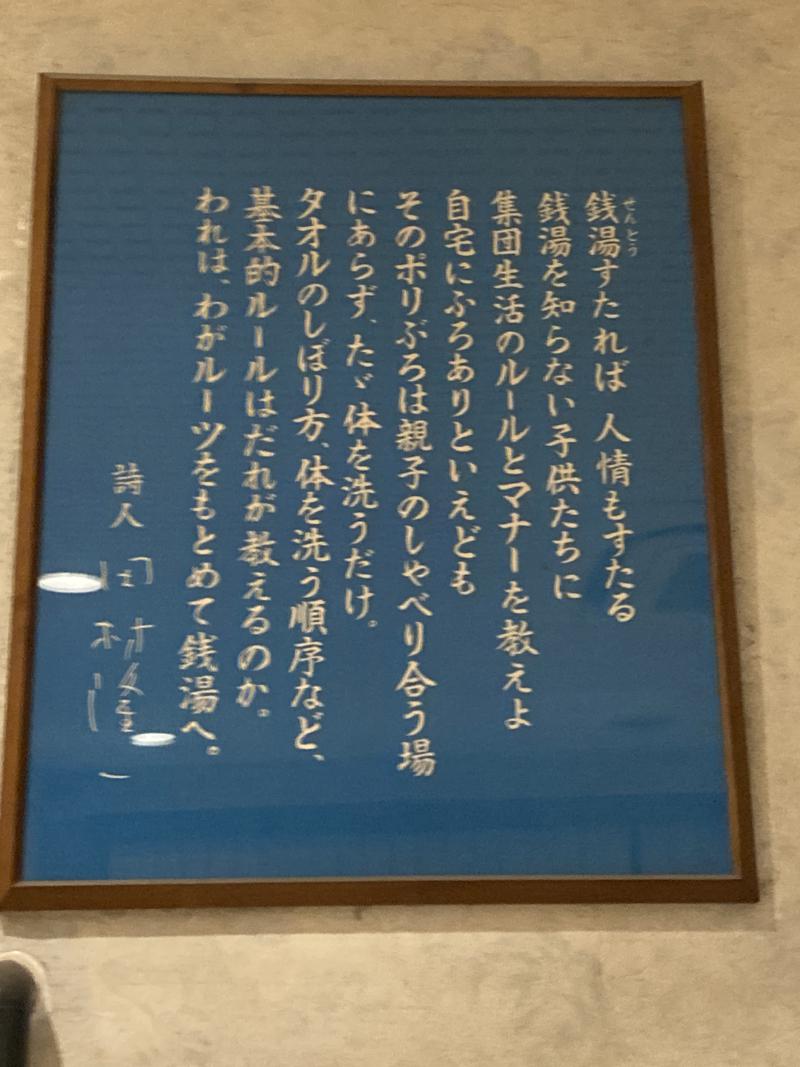 せんとう
銭湯すたれば 人情もすたる
銭湯を知らない子供たちに
集団生活のルールとマナーを教えよ
自宅にふろありといえども
そのポリぶろは親子のしゃべり合う場
にあらず、たゞ体を洗うだけ。
タオルのしぼり方、体を洗う順序など、
基本的ルールはだれが教えるのか。
われは、わがルーツをもとめて銭湯へ。
詩人
田村隆一